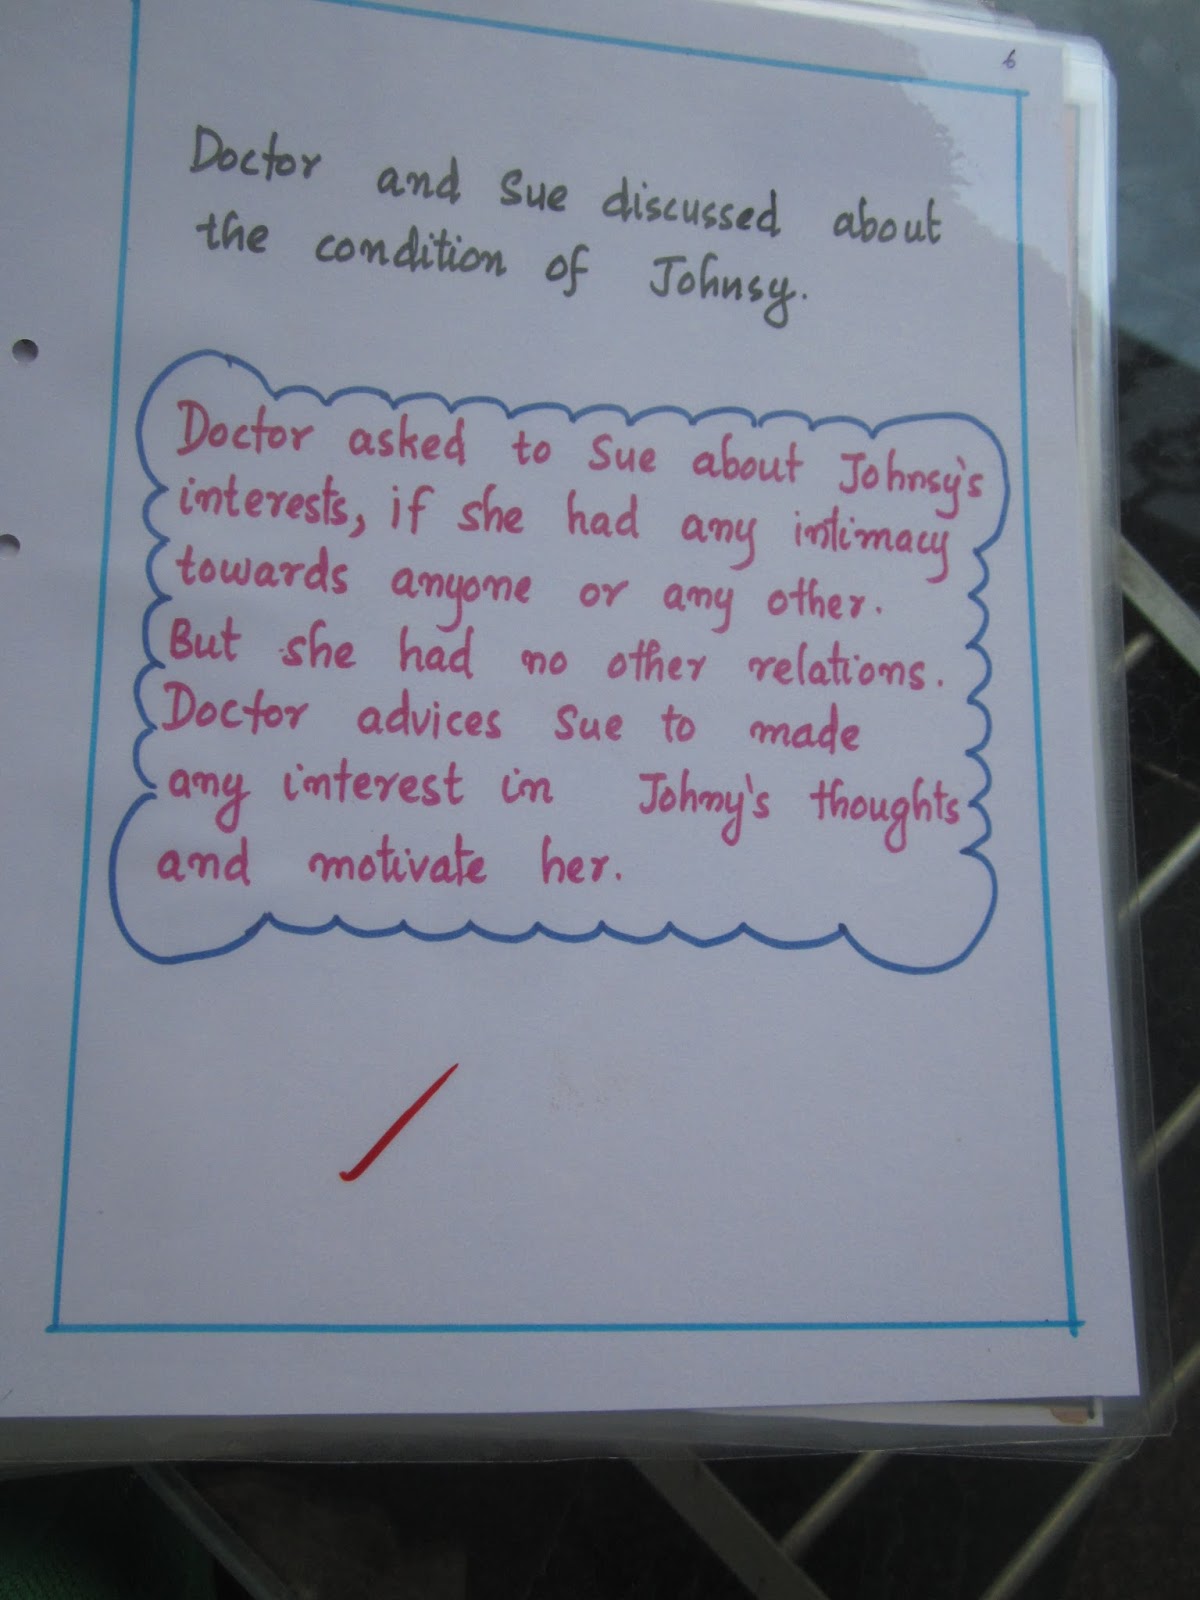 6
Doctor and Sue discussed about
the condition of Johnsy.
Doctor asked to Sue about Johnsy's
interests, if she had any intimacy
towards anyone or any other.
But she had no other relations.
Doctor advices Sue to made
any interest in Johny's thoughts
and motivate her.